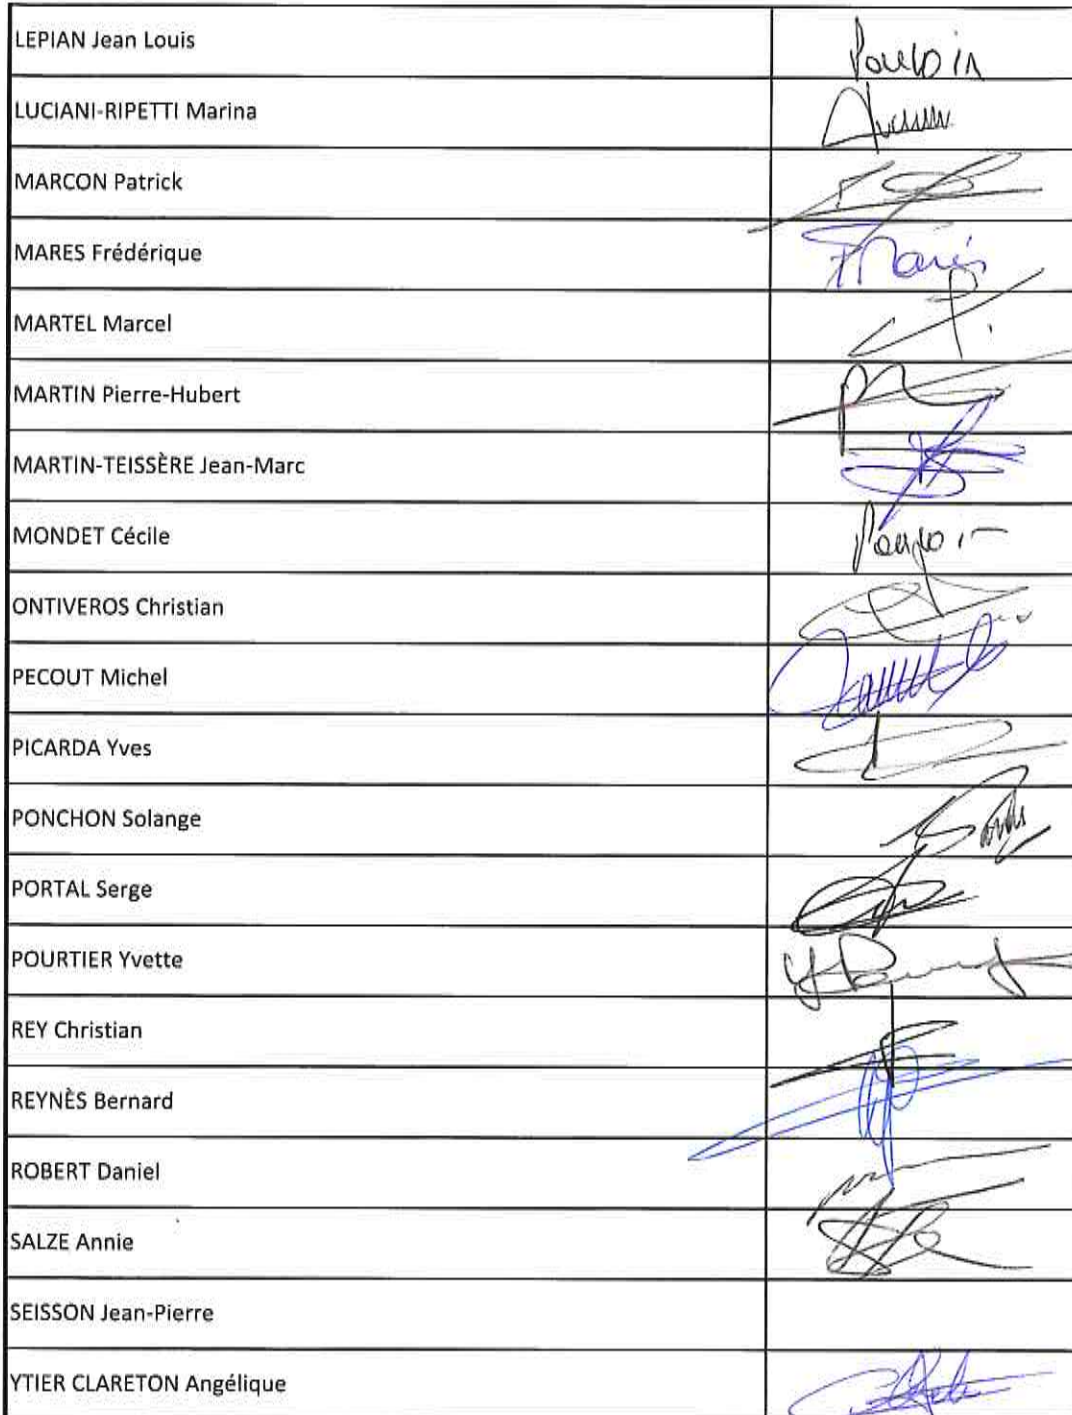 LEPIAN Jean Louis
Pouvoir
LUCIANI-RIPETTI Marina
MARCON Patrick
MARES Frédérique
FMarès
MARTEL Marcel
MARTIN Pierre-Hubert
MARTIN-TEISSÈRE Jean-Marc
MONDET Cécile
Pouvoir
ONTIVEROS Christian
PECOUT Michel
PICARDA Yves
PONCHON Solange
PORTAL Serge
POURTIER Yvette
REY Christian
REYNÈS Bernard
ROBERT Daniel
SALZE Annie
SEISSON Jean-Pierre
YTIER CLARETON Angélique